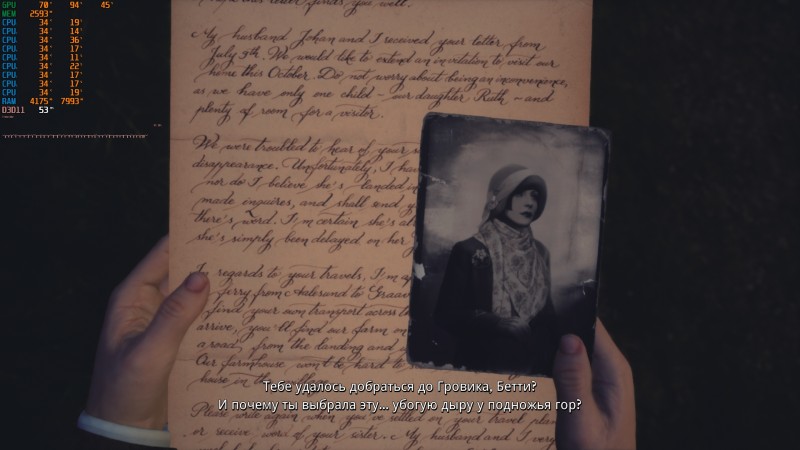 GPU 70° 94° 45°
MEM 2593"
CPU 34° 19'
CPU 34° 14'
CPU 34° 36'
CPU 34° 17'
CPU 34° 11'
CPU 34° 22'
CPU 34° 17'
CPU 34° 17'
CPU 34° 19'
RAM 4175" 7993"
D3D11 53"
this letter finds you well.
My husband Johan and I received your letter from
July 9th. We would like to extend an invitation to visit our
home this October. Do not worry about being an inconvenience,
as we have only one child ~ our daughter Ruth ~ and
plenty of room for a visitor.
We were troubled to hear of your s
disappearance. Unfortunately, I hav
nor do I believe she's landed in
made inquires, and shall send y
there's word. I'm certain she's al
she's simply been delayed on her
In regards to your travels, I'm
ferry from to
find your own transport across t
arrive, you'll find our farm on
a road, from the landing and
Our farmhouse won't be hard to
house in the
Тебе удалось добраться до Гровика, Бетти?
И почему ты выбрала эту... убогую дыру у подножья гор?
Please write again when you've settled on your travel plan
or receive word of your sister. My husband and I very